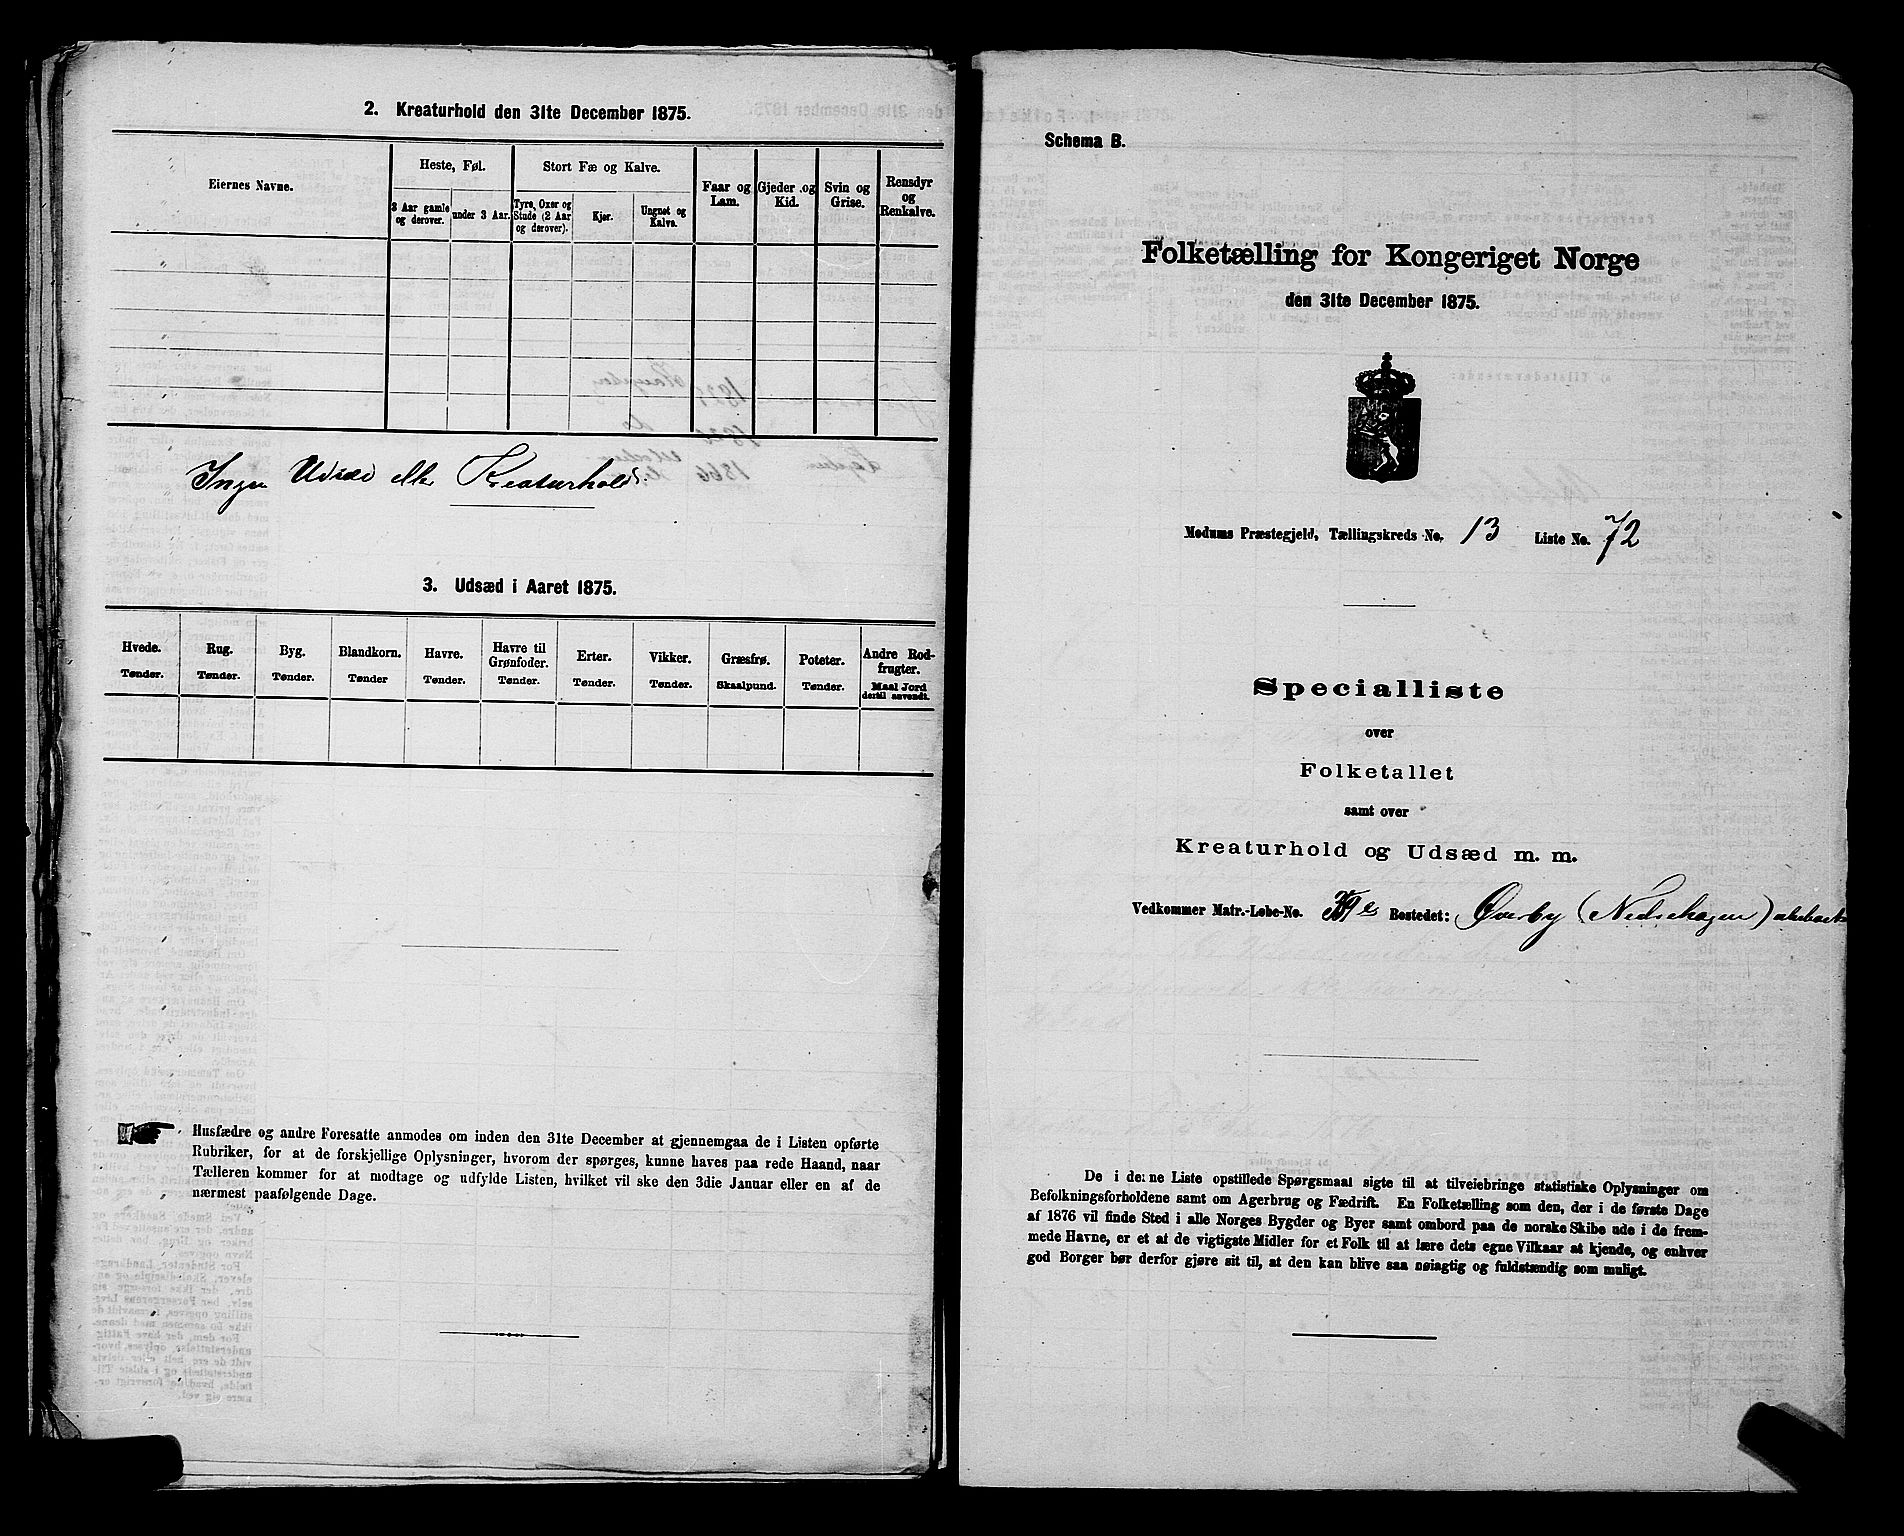 2. Kreaturhold den 31te December 1875.
Eiernes Navne.
Heste, Føl.
3 Aar gamle og derover.
under 3 Aar.
Stort Fæ og Kalve.
Tyre, Oxer og Stude (2 Aar og derover).
Kjør.
Ungnøt og Kalve.
Faar og Lam.
Gjeder og Kid.
Svin og Grise.
Rensdyr og Renkalve.
Ingen Udsæd eller Kreaturhold.
3. Udsæd i Aaret 1875.
Hvede. Tønder.
Rug. Tønder.
Byg. Tønder.
Blandkorn. Tønder
Havre. Tønder.
Havre til Grønfoder. Tønder.
Erter. Tønder.
Vikker. Tønder.
Græsfrø. Skaalpund.
Poteter. Tønder.
Andre Rodfrugter. Maal Jord dertil anvendt.
Husfædre og andre Foresatte anmodes om inden den 31te December at gjennemgaa de i Listen opførte
Rubriker, for at de forskjellige Oplysninger, hvorom der spørges, kunne haves paa rede Haand, naar
Tælleren kommer for at modtage og udfylde Listen, hvilket vil ske den 3die Januar eller en af de
nærmest paafølgende Dage.
Schema B.
Folketælling for Kongeriget Norge
den 31te December 1875.
Modums Præstegjeld, Tællingskreds No. 13 Liste No. 72
Specialliste
over
Folketallet
samt over
Kreaturhold og Udsæd m. m.
Vedkommer Matr.-Løbe-No. Bostedet: Øverby (Nedrehagen)
De i denne Liste opstillede Spørgsmaal sigte til at tilveiebringe statistiske Oplysninger om
Befolkningsforholdene samt om Agerbrug og Fædrift. En Folketælling som den, der i de første Dage
af 1876 vil finde Sted i alle Norges Bygder og Byer samt ombord paa de norske Skibe ude i de frem-
mede Havne, er et at de vigtigste Midler for et Folk til at lære dets egne Vilkaar at kjende, og enhver
god Borger bør derfor gjøre sit til, at den kan blive saa nøiagtig og fuldstændig som muligt.